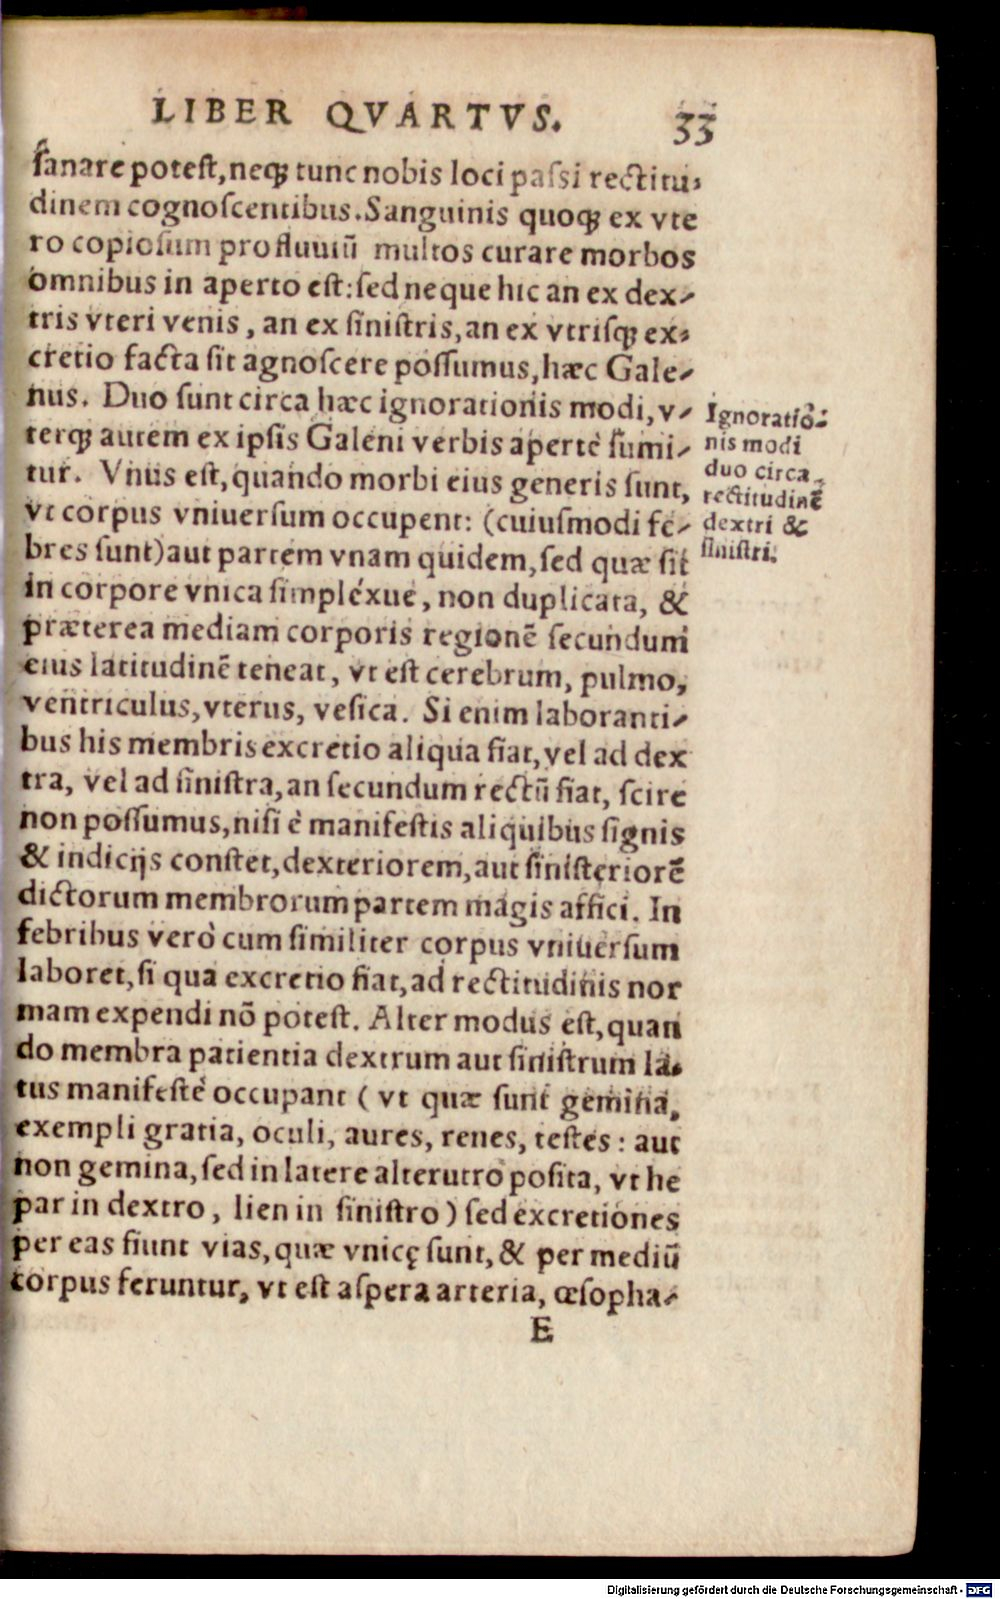 LIBER QVARTVS. 33
ſanare poteſt,neqꝫ tunc nobis loci paſsi rectitu-
dinem cognoſcentibus.Sanguinis quoqꝫ ex vte
ro copioſum profluuiū multos curare morbos
omnibus in aperto eſt:ſed neque hic an ex dex-
tris vteri venis, an ex ſiniſtris,an ex vtriſqꝫ ex-
cretio facta ſit agnoſcere poſſumus,hæc Gale-
nus. Duo ſunt circa hæc ignorationis modi, v-
terqꝫ autem ex ipſis Galeni verbis apertè ſumi-
tur. Vnus eſt,quando morbi eius generis ſunt,
vt corpus vniuerſum occupent: (cuiuſmodi fe-
bres ſunt)aut partem vnam quidem,ſed quæ ſit
in corpore vnica ſimpléxue, non duplicata, &
præterea mediam corporis regionē ſecundum
eius latitudinē teneat, vt eſt cerebrum, pulmo,
ventriculus,vterus, veſica. Si enim laboranti-
bus his membris excretio aliqua fiat,vel ad dex
tra, vel ad ſiniſtra,an ſecundum rectū fiat, ſcire
non poſſumus,niſi è manifeſtis aliquibus ſignis
& indicijs conſtet,dexteriorem,aut ſiniſteriorē
dictorum membrorum partem magis affici. In
febribus verò cum ſimiliter corpus vniuerſum
laboret,ſi qua excretio fiat,ad rectitudinis nor
mam expendi nō poteſt. Alter modus eſt,quan
do membra patientia dextrum aut ſiniſtrum la-
tus manifeſtè occupant ( vt quæ ſunt gemina,
exempli gratia, oculi, aures, renes, teſtes: aut
non gemina,ſed in latere alterutro poſita, vt he
par in dextro, lien in ſiniſtro) ſed excretiones
per eas fiunt vias,quæ vnicę ſunt,& per mediū
corpus feruntur, vt eſt aſpera arteria, œſopha-
E
Ignoratio-
nis modi
duo circa
rectitudinē
dextri &
ſiniſtri.
Digitalisierung gefördert durch die Deutsche Forschungsgemeinschaft - DFG